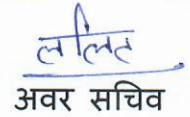 ललित
अवर सचिव